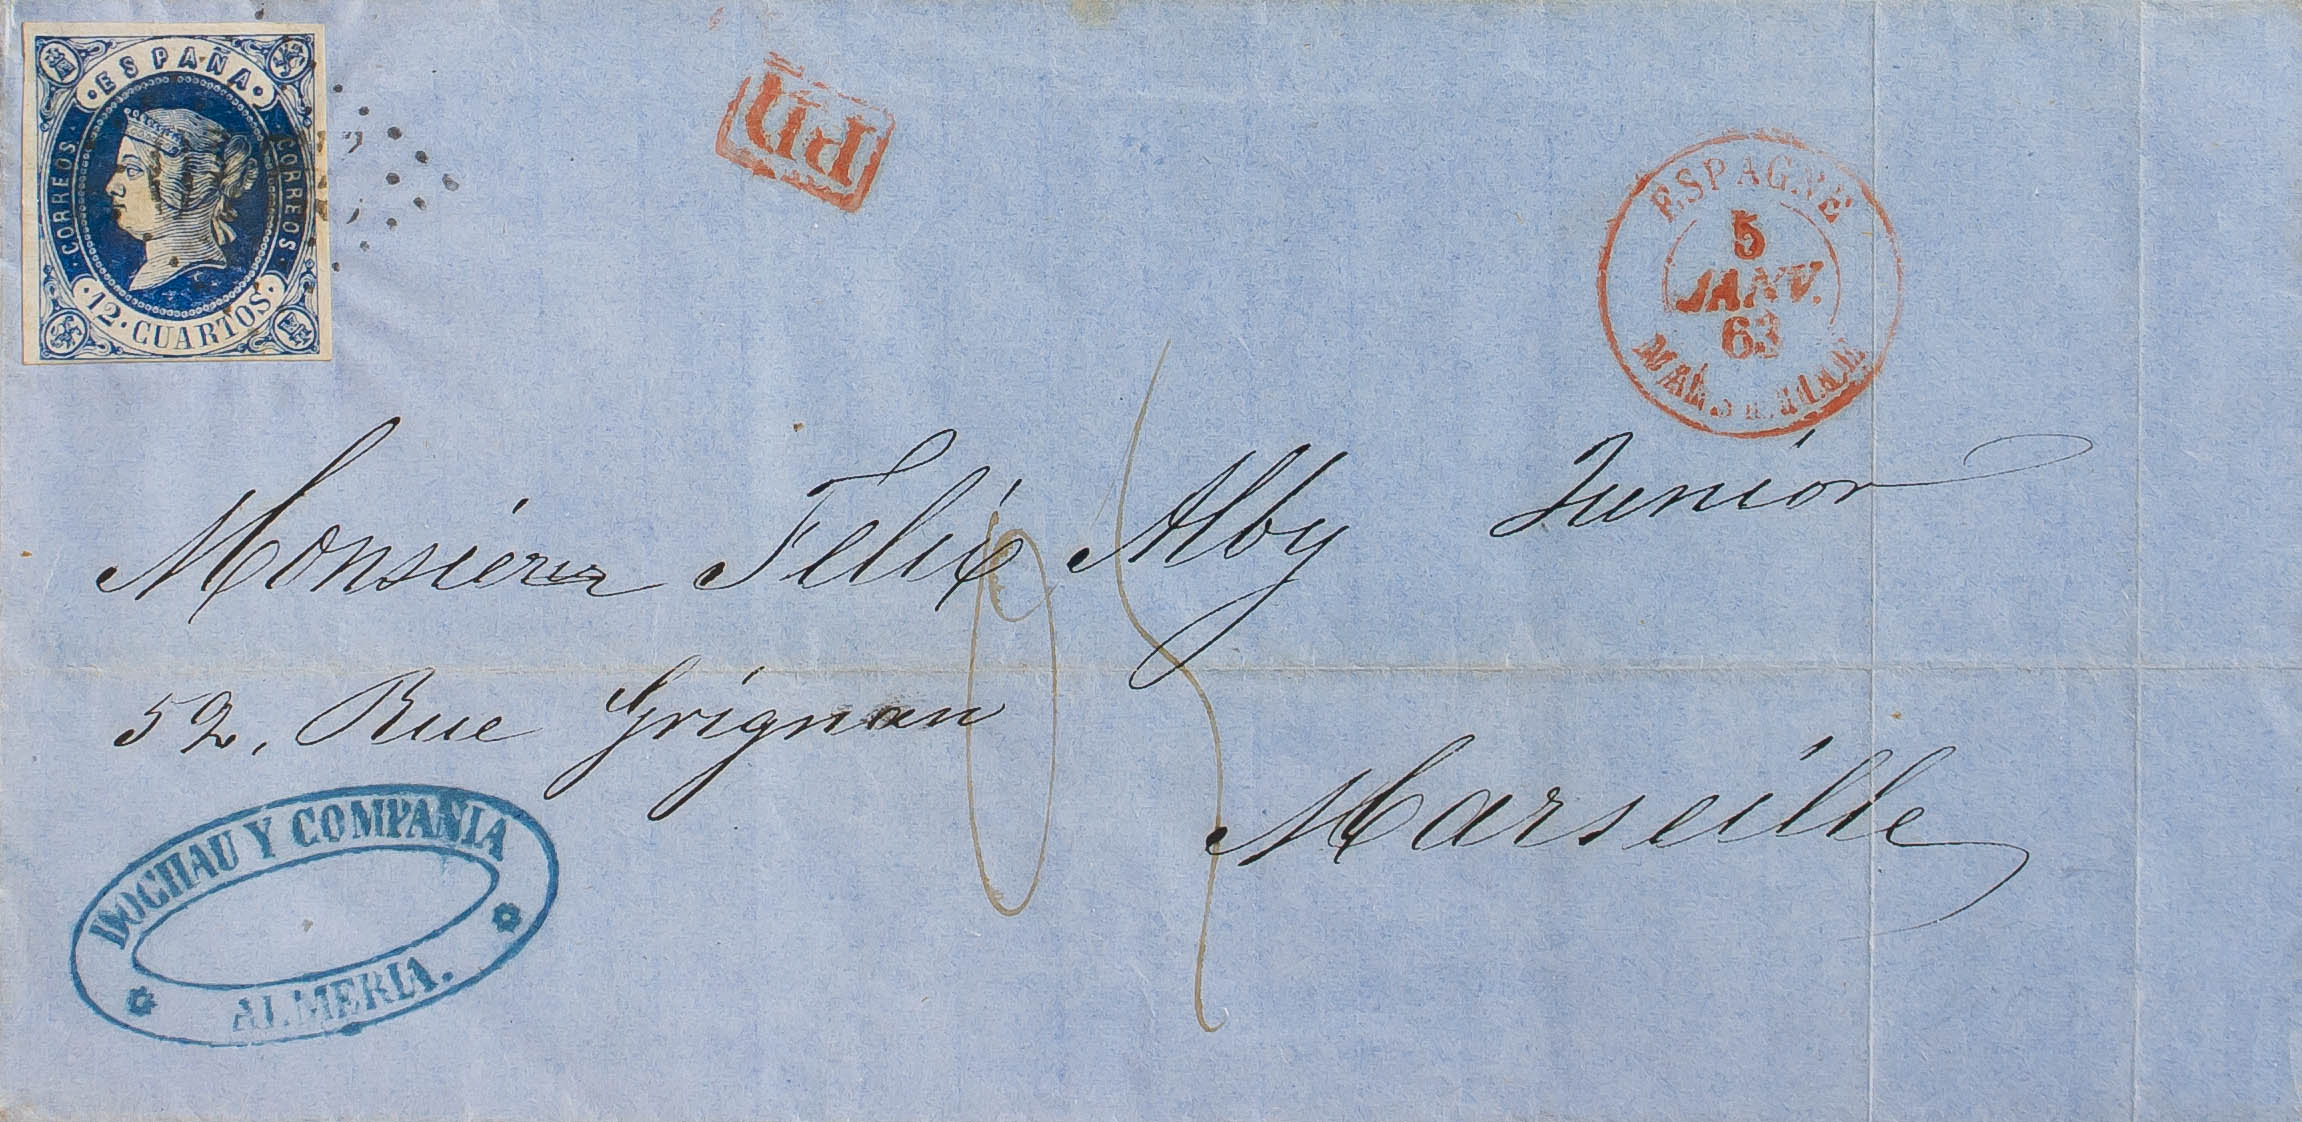 · ESPAÑA ·
· CORREOS ·
· CORREOS ·
· 12 · CUARTOS ·
PD
ESPAGNE
5
JANV.
63
MARSEILLE
Monsieur Felix Alby Junior
52, Rue Grignan
Marseille
DOCHAU Y COMPAÑIA
ALMERIA.